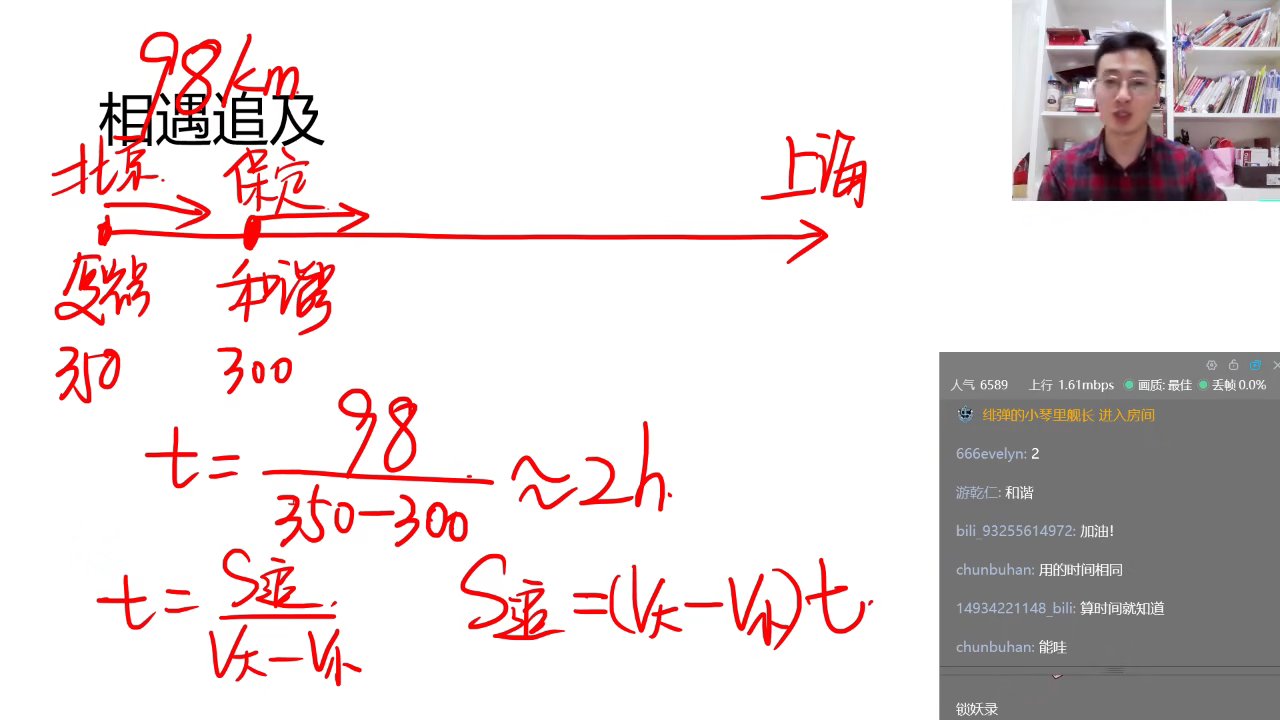 98km
相遇追及
北京
保定
上海
复兴号
和谐
350
300
t=98/(350-300)≈2h
t=S追/(V大-V小)
S追=(V大-V小)t
人气 6589 上行 1.61mbps 画质: 最佳 丢帧 0.0%
绯弹的小琴里舰长 进入房间
666evelyn: 2
游乾仁: 和谐
bili_93255614972: 加油!
chunbuhan: 用的时间相同
14934221148_bili: 算时间就知道
chunbuhan: 能哇
锁妖录